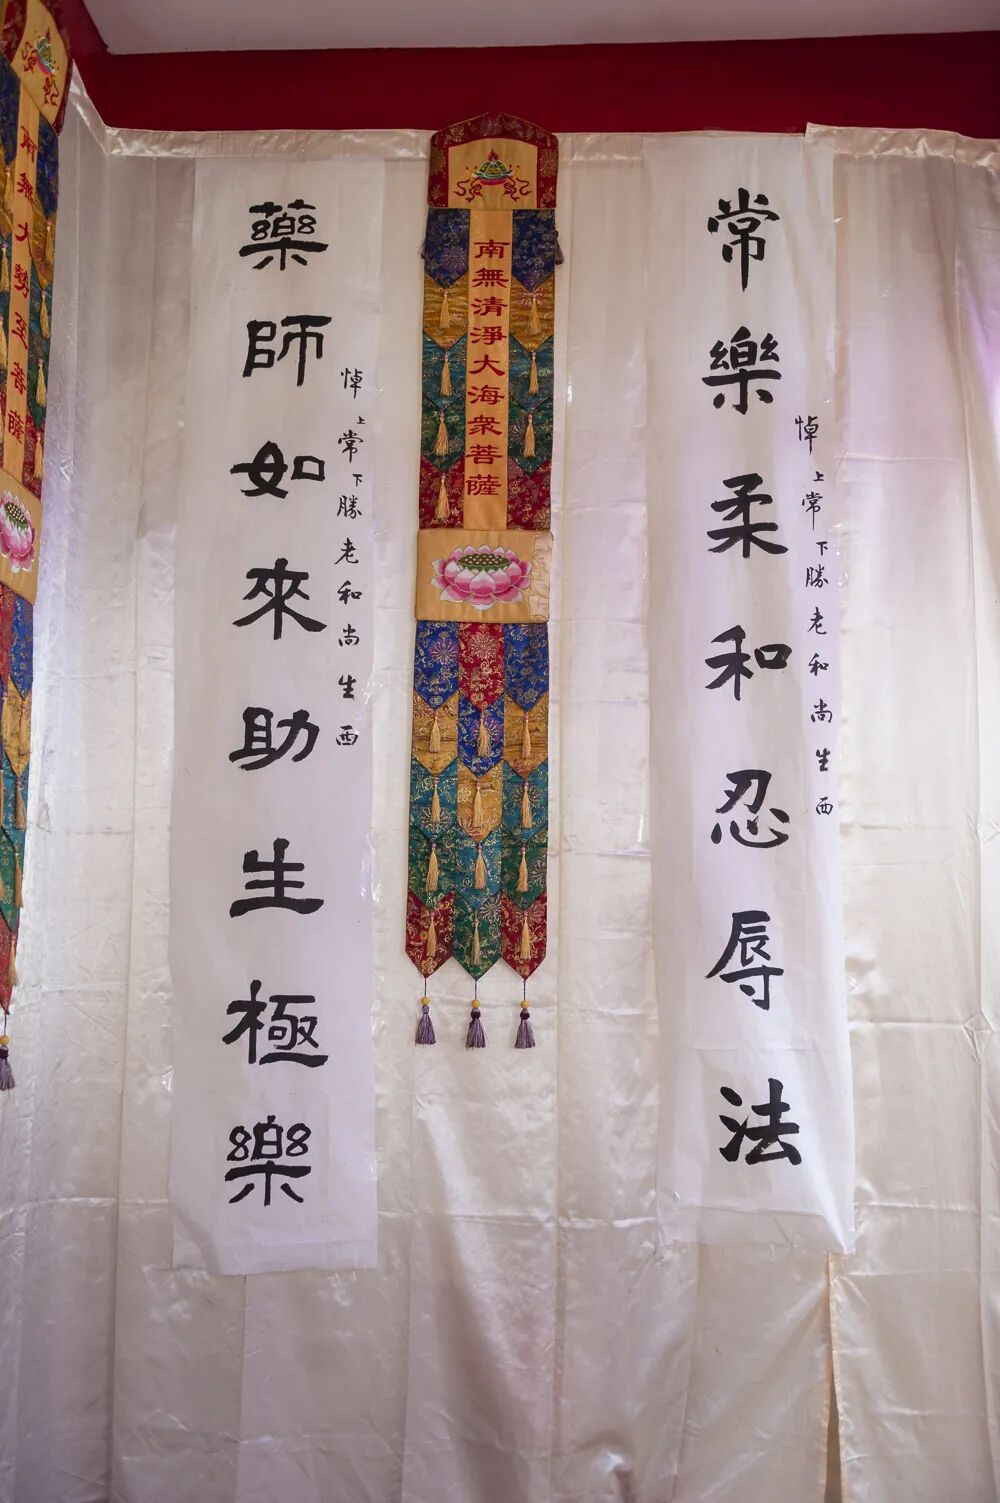 常樂柔和忍辱法
悼上常下勝老和尚生西
南無清淨大海衆菩薩
藥師如來助生極樂
悼上常下勝老和尚生西
南無大勢至菩薩